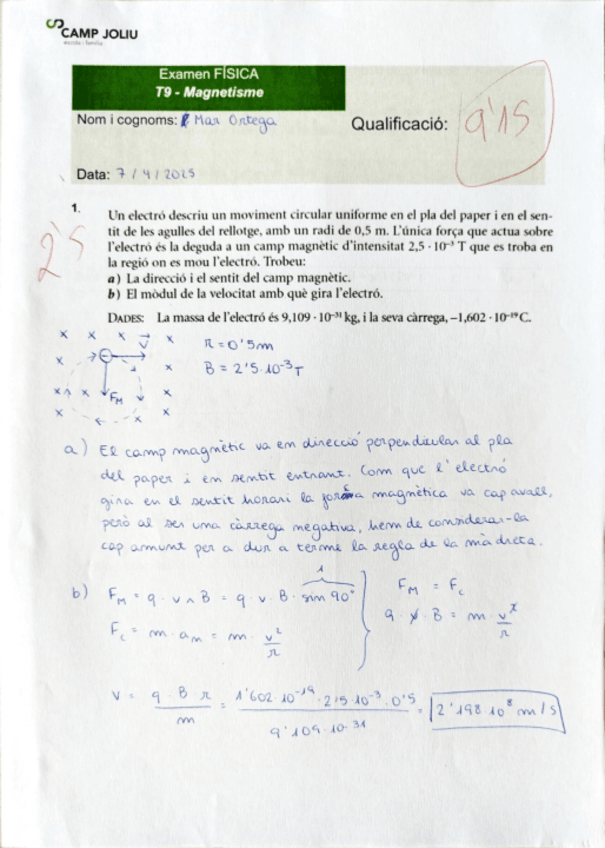 CAMP JOLIU
escola i família
Examen FÍSICA
T9 - Magnetisme
Nom i cognoms: Mar Ortega
Qualificació: 9'15
Data: 7/4/2025
2'5
1.
Un electró descriu un moviment circular uniforme en el pla del paper i en el sen-
tit de les agulles del rellotge, amb un radi de 0,5 m. L'única força que actua sobre
l'electró és la deguda a un camp magnètic d'intensitat 2,5 · 10⁻³ T que es troba en
la regió on es mou l'electró. Trobeu:
a) La direcció i el sentit del camp magnètic.
b) El mòdul de la velocitat amb què gira l'electró.
DADES: La massa de l'electró és 9,109 · 10⁻³¹ kg, i la seva càrrega, −1,602 · 10⁻¹⁹ C.
x x x v x
x x
x x x F_M x
x x x
R = 0'5m
B = 2'5·10⁻³T
a) El camp magnètic va em direcció perpendicular al pla
del paper i em sentit entrant. Com que l'electró
gira en el sentit horari la força magnètica va cap avall,
però al ser uma càrrega megativa, hem de considerar-la
cap amunt per a dur a terme la regla de la mà dreta.
b) F_M = q · v ∧ B = q · v · B · sin 90° 1
F_c = m · a_n = m · v²/r
F_M = F_c
q · v · B = m · v²/r
v = q · B · r / m = 1'602·10⁻¹⁹ · 2'5·10⁻³ · 0'5 / 9'109·10⁻³¹ = 2'198·10⁸ m/s